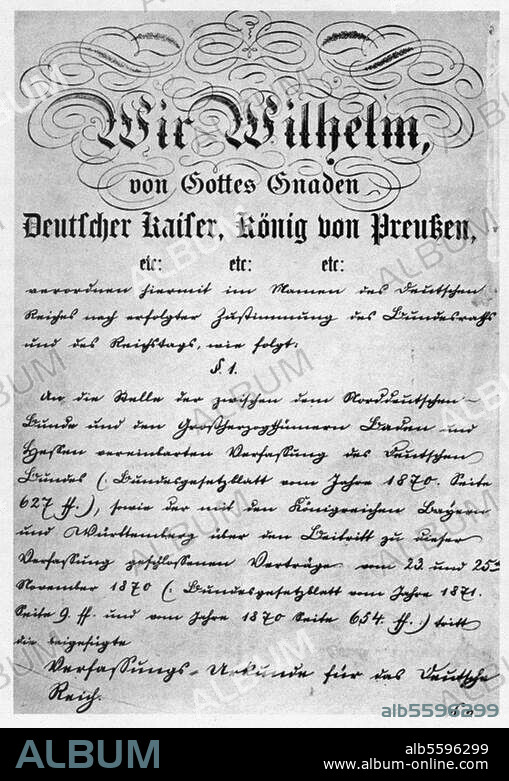 Wir Wilhelm,
von Gottes Gnaden
Deutscher Kaiser, König von Preußen,
etc: etc: etc:
verordnen hiermit im Namen des Deutschen
Reiches nach erfolgter Zustimmung des Bundesraths
und des Reichstags, wie folgt:
§. 1.
An die Stelle der zwischen dem Norddeutschen
Bunde und den Großherzogthümern Baden und
Hessen vereinbarten Verfassung des Deutschen
Bundes (: Bundesgesetzblatt vom Jahre 1870. Seite
627 ff.), sowie der mit den Königreichen Bayern
und Württemberg über den Beitritt zu dieser
Verfassung geschlossenen Verträge vom 23. und 25ten
November 1870 (: Bundesgesetzblatt vom Jahre 1871.
Seite 9. ff. und vom Jahre 1870 Seite 654. ff.:) tritt
die beigefügte
Verfassungs-Urkunde für das Deutsche
Reich.
alb5596299
ALBUM
alb5596299
www.album-online.com